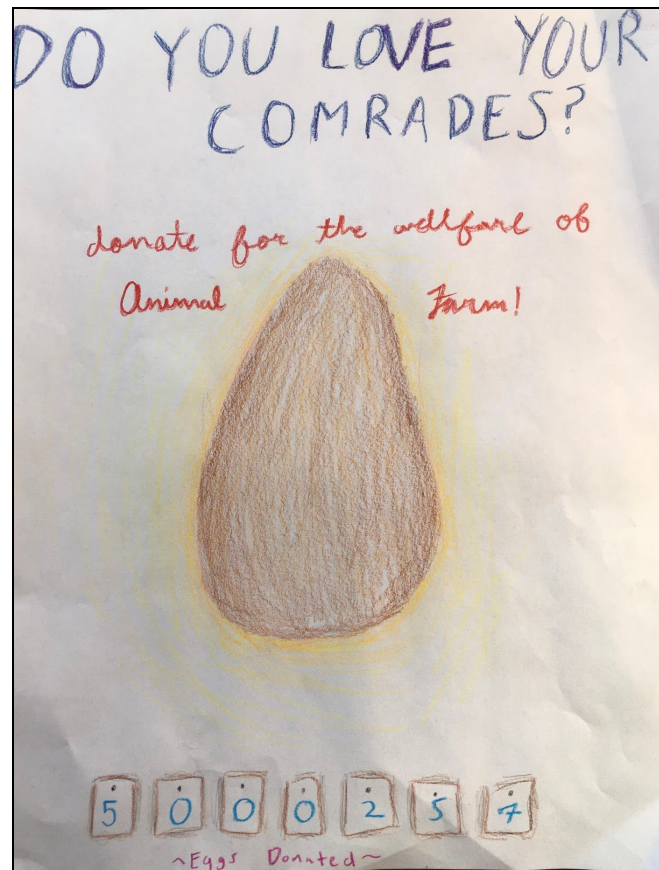 DO YOU LOVE YOUR
COMRADES?
donate for the wellfare of
Animal Farm!
5 0 0 0 2 5 7
~Eggs Donated~